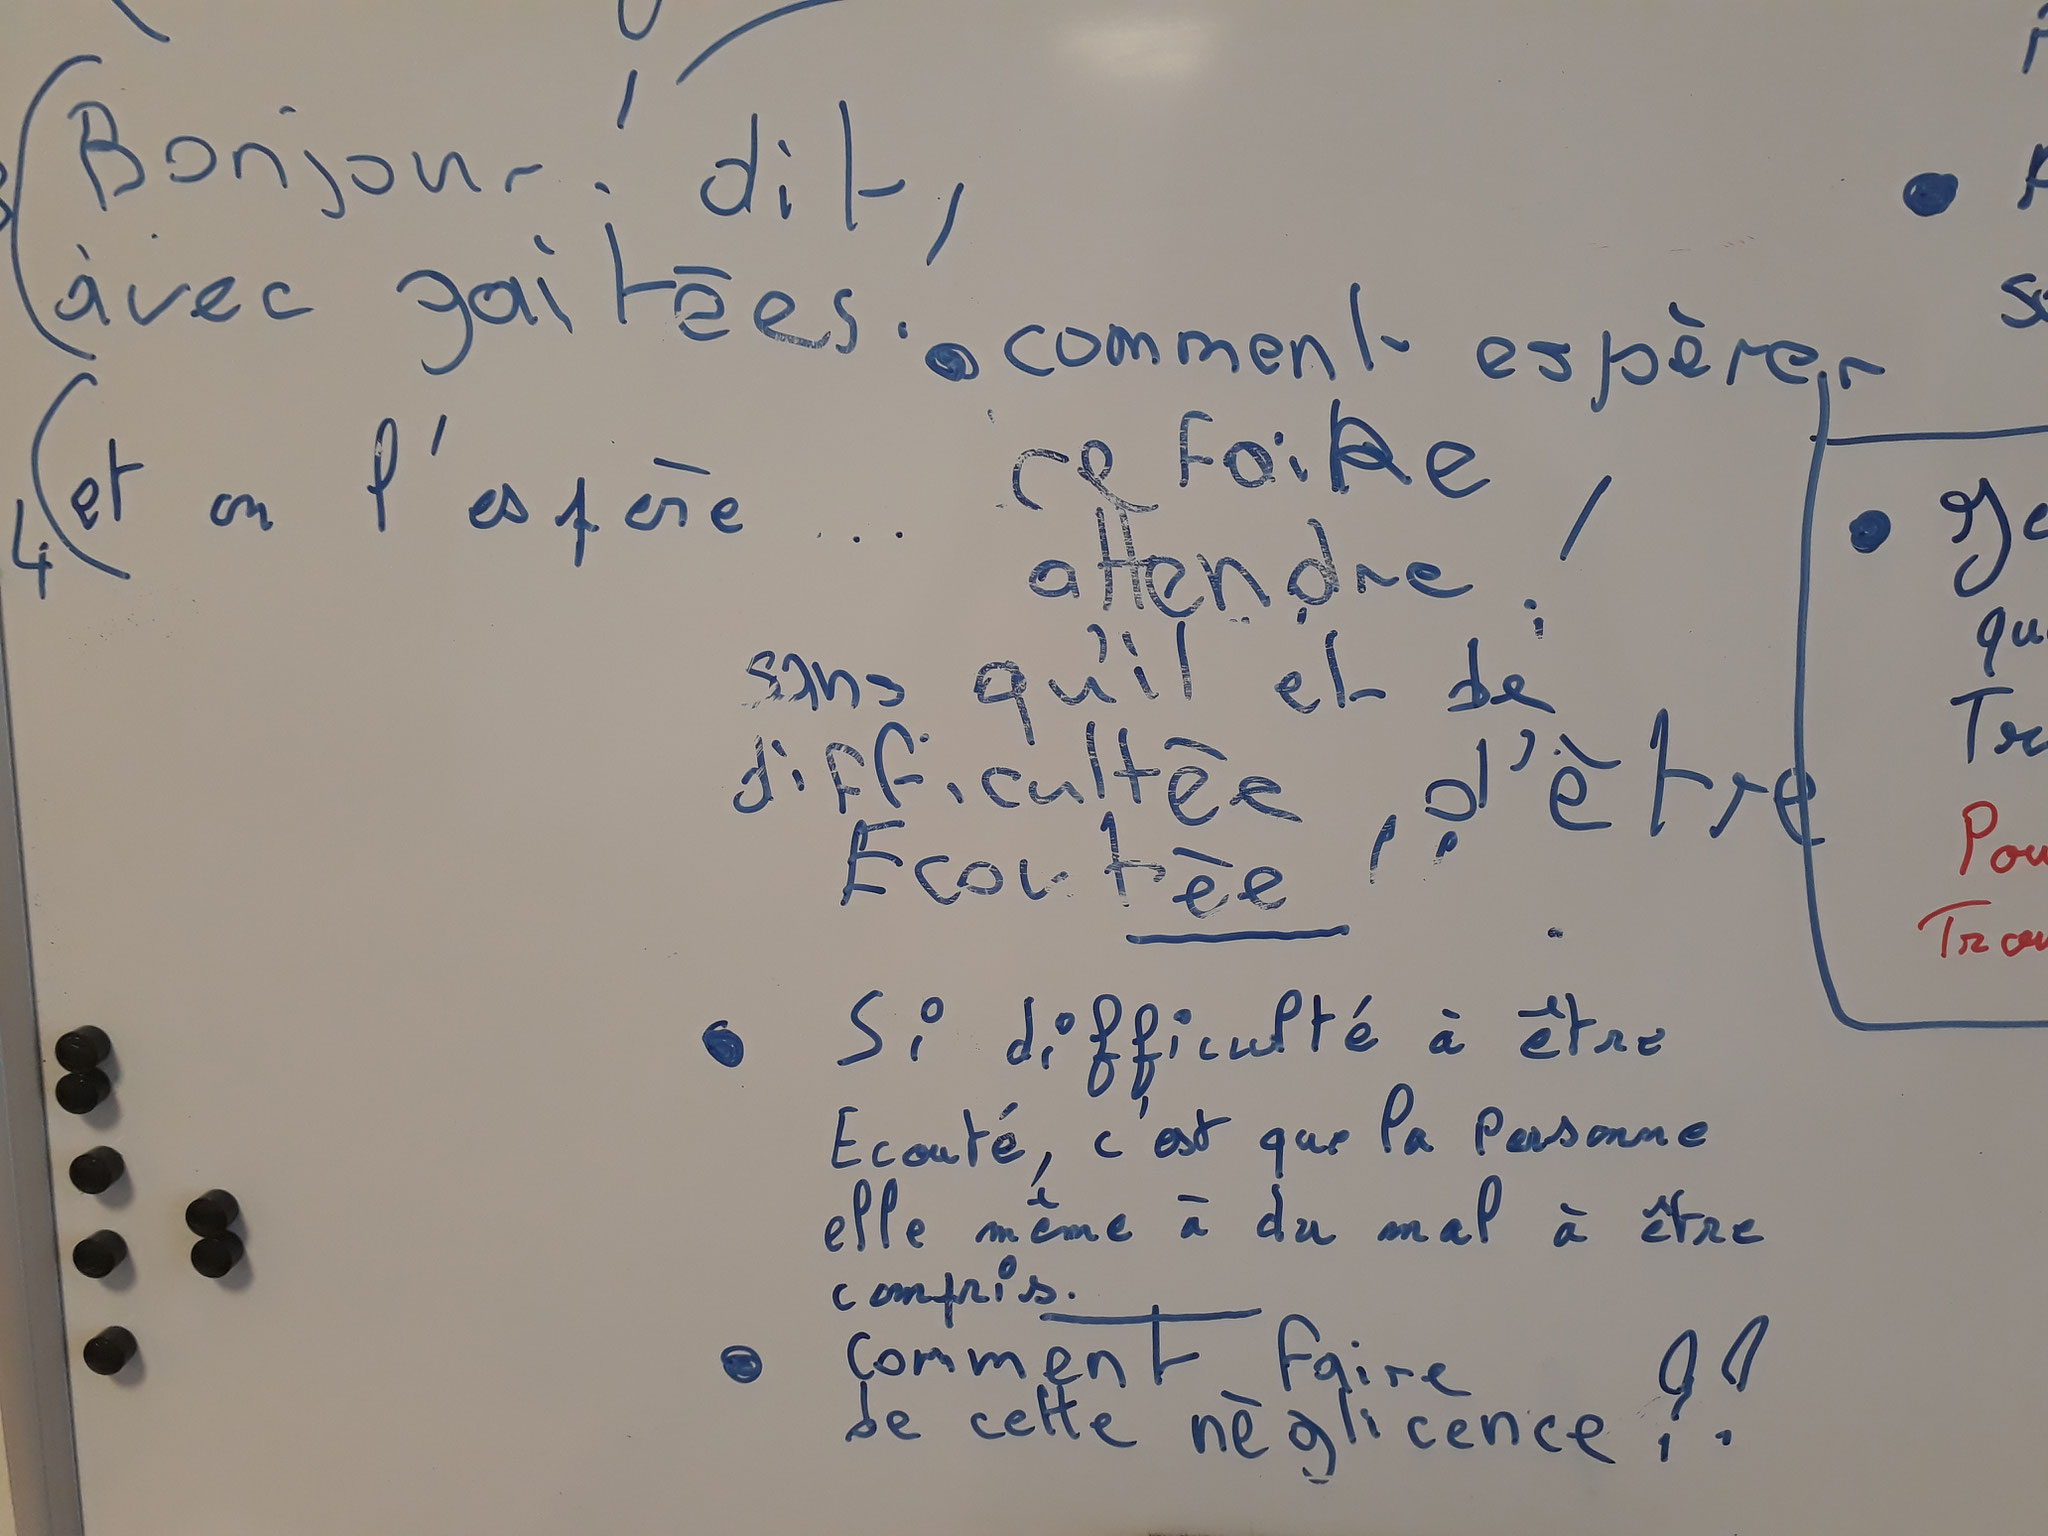 Bonjour ! dit,
àvec gaitèes.
4 et on l'espère ...
• comment espèrer
ce FaiRe
attendre !
sans qu'il et de
difficultèe, d'ètre
Ecoutèe !
• Si difficulté à être
Ecouté, c'est que la Personne
elle même à du mal à être
compris.
• Comment Faire
de cette nèglicènce !!
•
•
Je
que
Pou